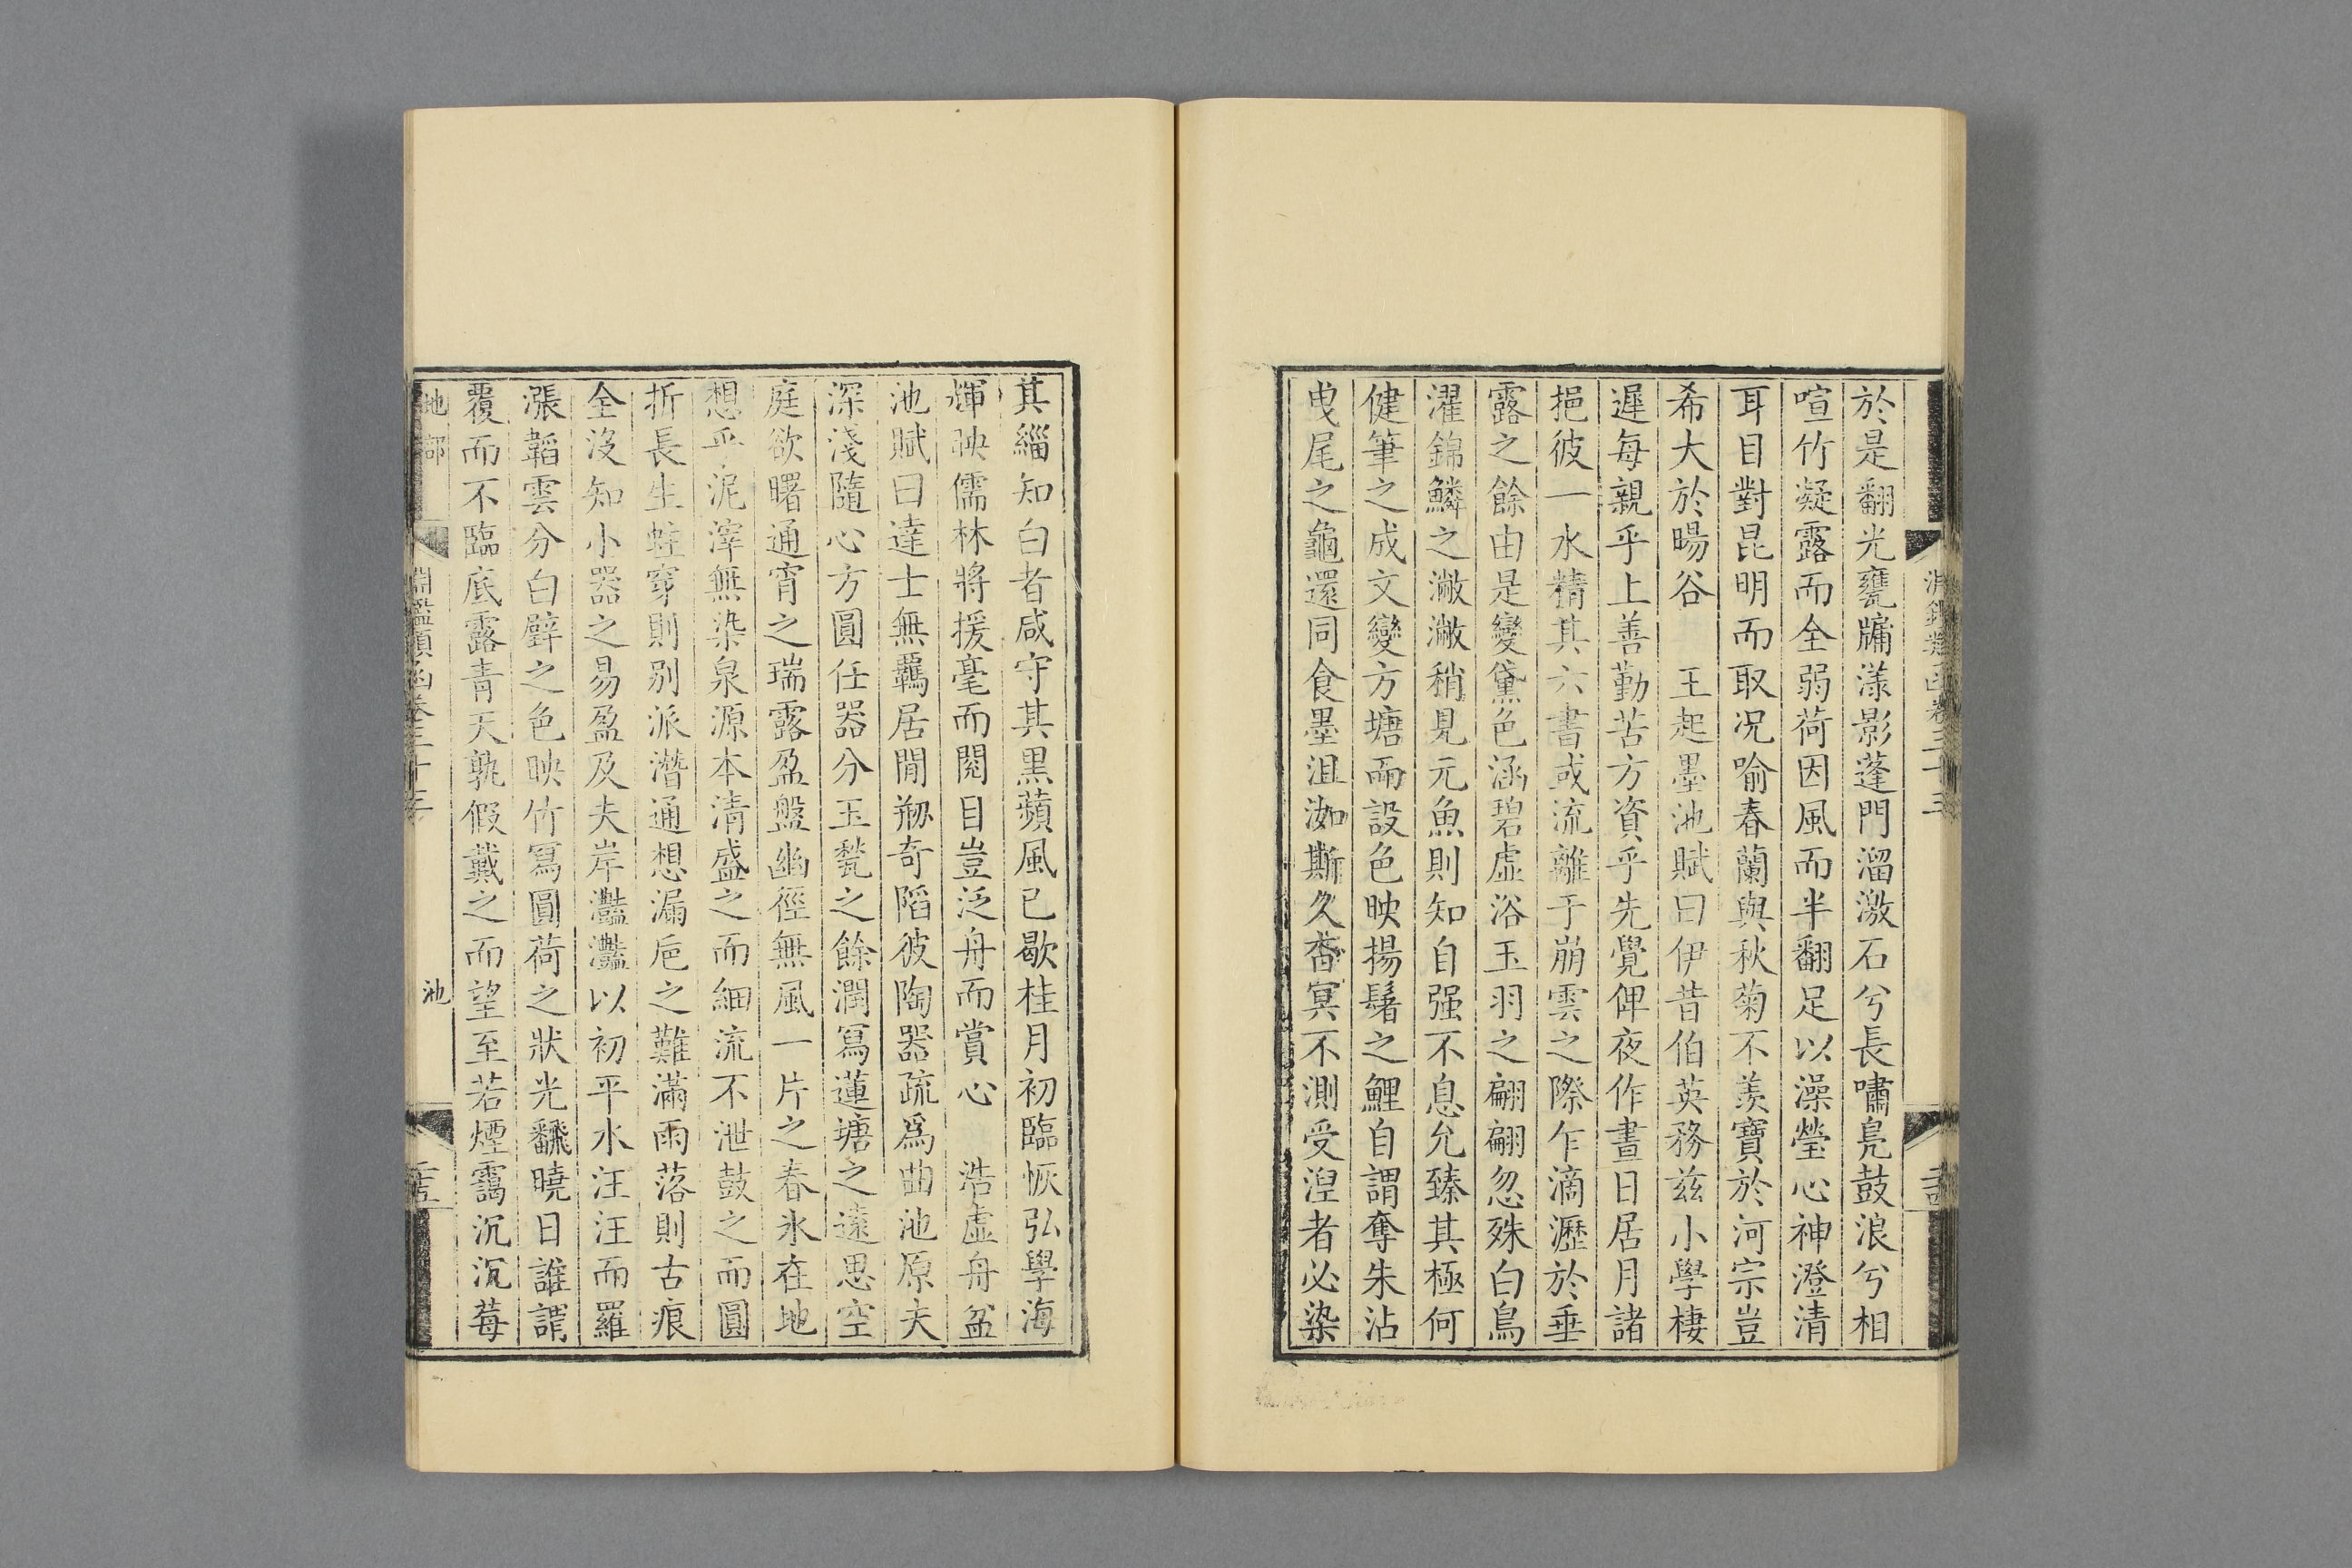 於是翻光甕牖漾影蓬門溜激石兮長嘯鳧鼓浪兮相
喧竹凝露而全弱荷因風而半翻足以澡瑩心神澄清
耳目對昆明而取况喻春蘭與秋菊不羡寶於河宗豈
希大於暘谷　王起墨池賦曰伊昔伯英務兹小學棲
遲每親乎上善勤苦方資乎先覺俾夜作晝日居月諸
挹彼一水精其六書或流離于崩雲之際乍滴瀝於垂
露之餘由是變黛色涵碧虛浴玉羽之翩翩忽殊白鳥
濯錦鱗之潎潎稍見元魚則知自强不息允臻其極何
健筆之成文變方塘而設色映揚鬐之鯉自謂奪朱沾
曳尾之龜還同食墨沮洳斯久杳冥不測受涅者必染
其緇知白者咸守其黑蘋風已歇桂月初臨恢弘學海
輝映儒林將援毫而閱目豈泛舟而賞心　浩虛舟盆
池賦曰達士無羈居閒剏奇陷彼陶器疏爲曲池原夫
深淺隨心方圓任器分玉甃之餘潤冩蓮塘之遠思空
庭欲曙通宵之瑞露盈盤幽徑無風一片之春氷在地
想乎泥滓無染泉源本清盛之而細流不泄鼓之而圓
折長生蛙穿則别派潛通想漏巵之難滿雨落則古痕
全沒知小器之易盈及夫岸灩灩以初平水汪汪而羅
漲韜雲分白璧之色映竹冩圓荷之狀光翻曉日誰謂
覆而不臨底露青天孰假戴之而望至若煙靄沉沉莓
地部
淵鑑類函卷三十三
池